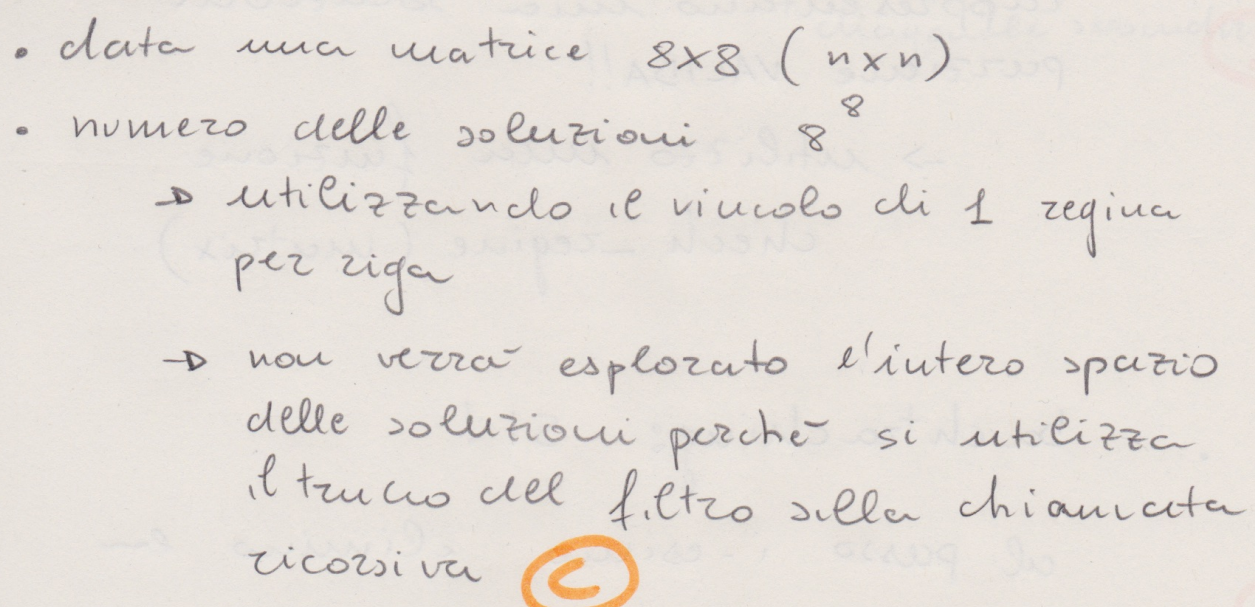 • data una matrice 8x8 (nxn)
• numero delle soluzioni 8^8
→ utilizzando il vincolo di 1 regina
per riga
→ non verrà esplorato l'intero spazio
delle soluzioni perchè si utilizza
il trucco del filtro sulla chiamata
ricorsiva C